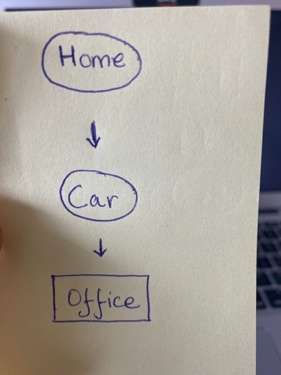 Home
Car
Office